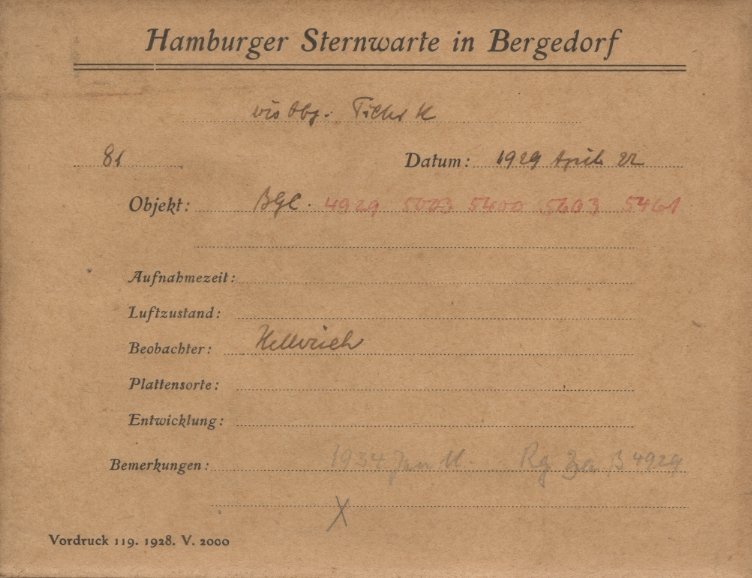 Hamburger Sternwarte in Bergedorf
vis Obj.
81 Datum: 1929 April 22
Objekt: BGC. 4929 5003 5400 5603 5461
Aufnahmezeit:
Luftzustand:
Beobachter: Hellerich
Plattensorte:
Entwicklung:
Bemerkungen: 1934 Jan 11. B 4929
X
Vordruck 119. 1928. V. 2000